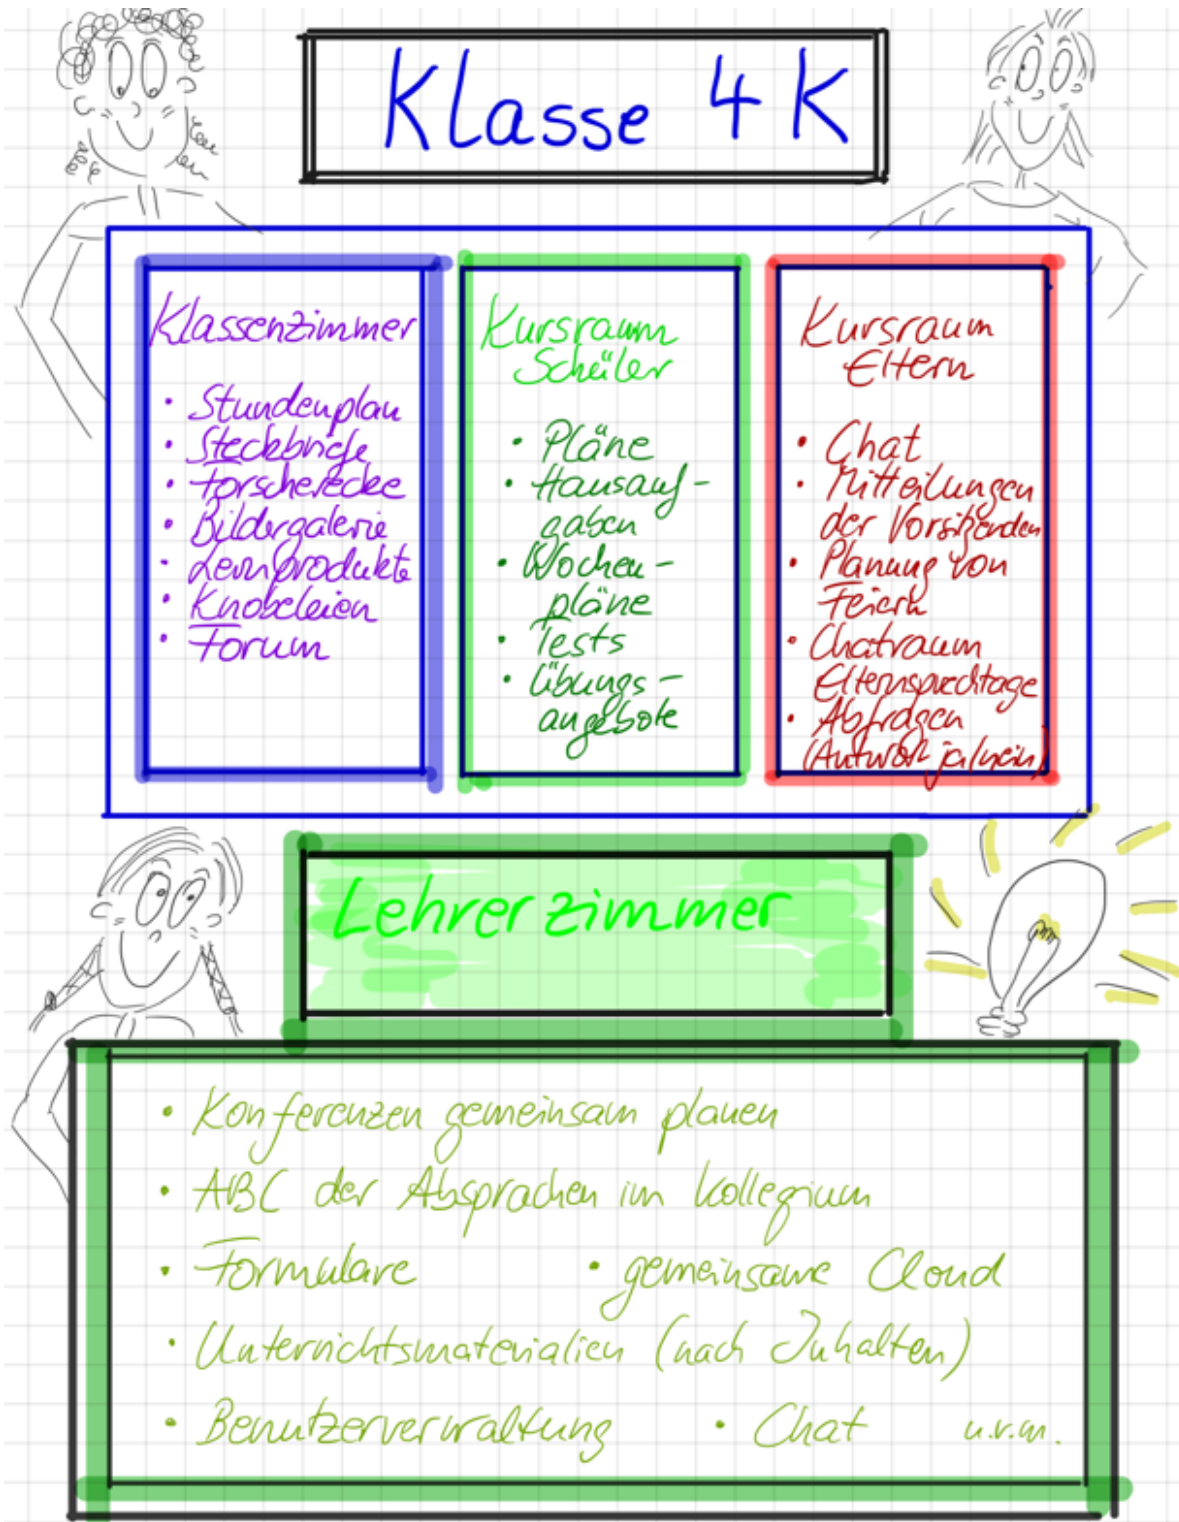 Klasse 4K
Klassenzimmer
• Stundenplan
• Steckbriefe
• Forscherecke
• Bildergalerie
• Lernprodukte
• Knobeleien
• Forum
Kursraum
Schüler
• Pläne
• Hausauf-
gaben
• Wochen-
pläne
• Tests
• Übungs-
angebote
Kursraum
Eltern
• Chat
• Mitteilungen
der Vorsitzenden
• Planung von
Feiern
• Chatraum
Elternsprechtage
• Abfragen
(Antwort ja/nein)
Lehrerzimmer
• Konferenzen gemeinsam planen
• ABC der Absprachen im Kollegium
• Formulare • gemeinsame Cloud
• Unterrichtsmaterialien (nach Inhalten)
• Benutzerverwaltung • Chat u.v.m.